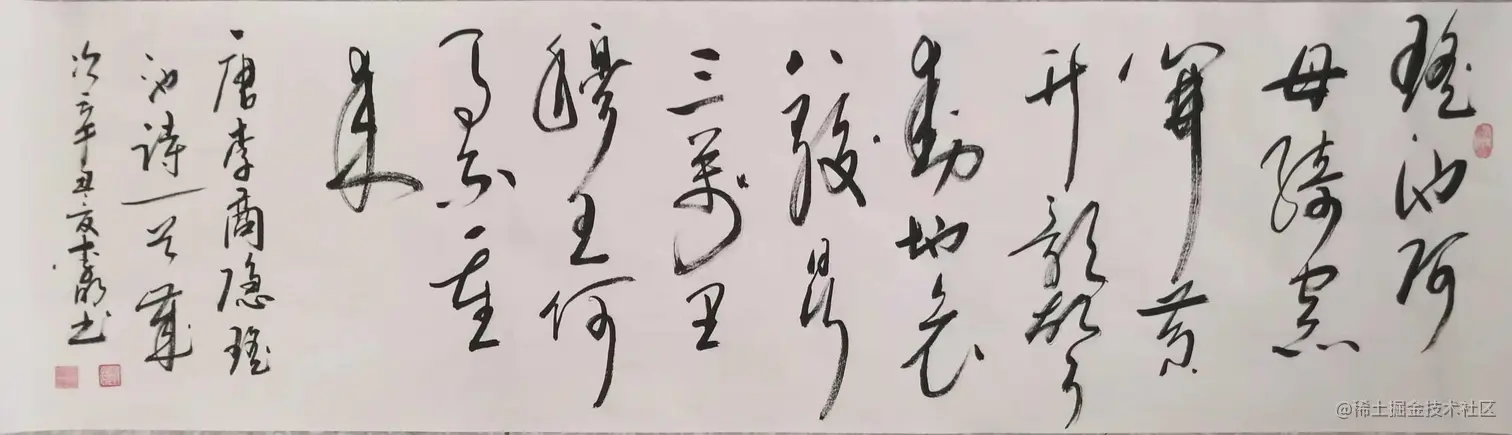 瑶池阿
母綺窓
開黄
竹歌聲
動地哀
八駿日行
三萬里
穆王何
事不重
来
唐李商隐瑶
池詩一首歲
次辛丑夏书
@稀土掘金技术社区